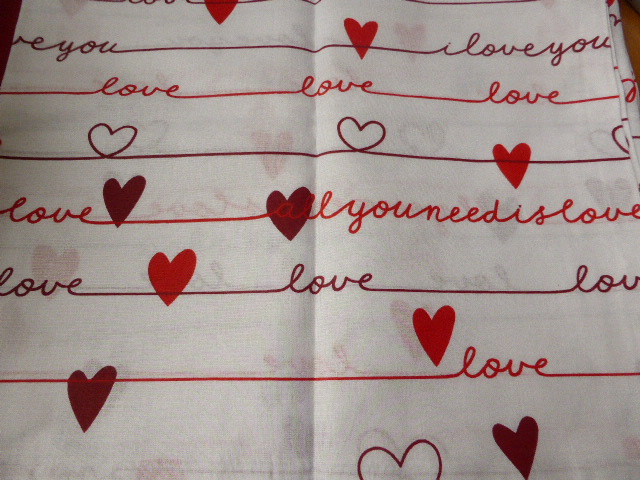 love
iloveyou
love love love
love allyouneedislove
love love
love